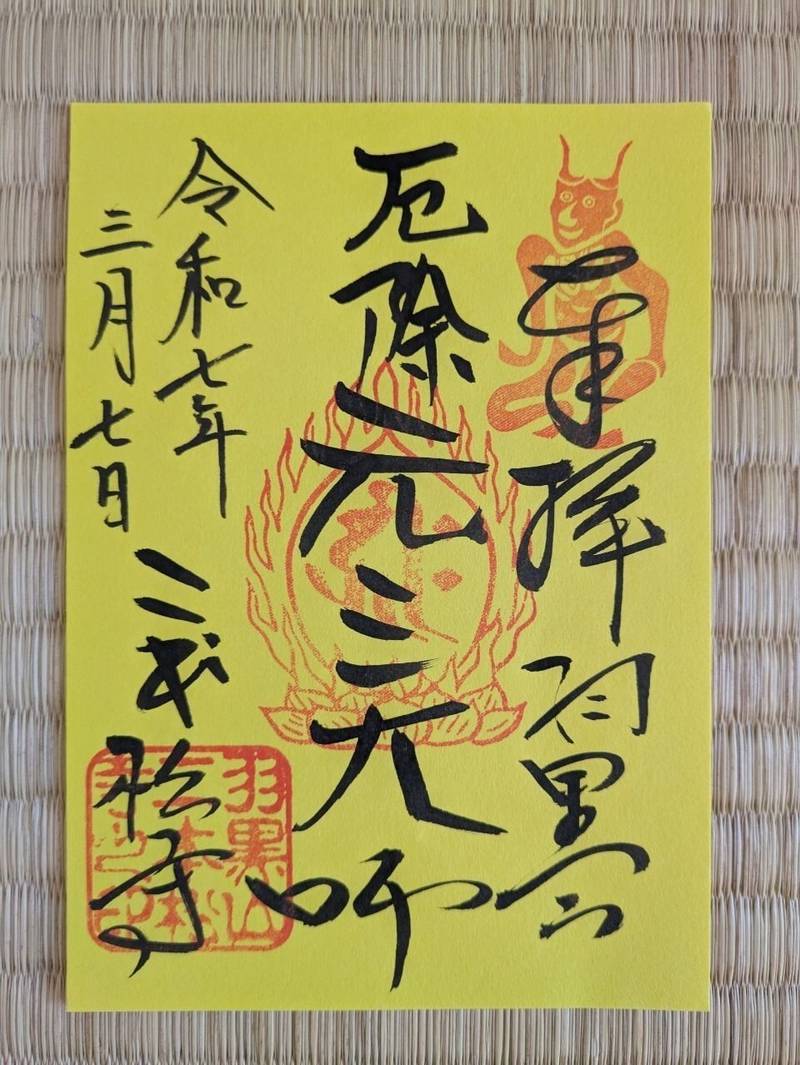 奉拝 羽黒山
厄除 元三大師
令和七年
三月七日
二本松寺
羽黒山